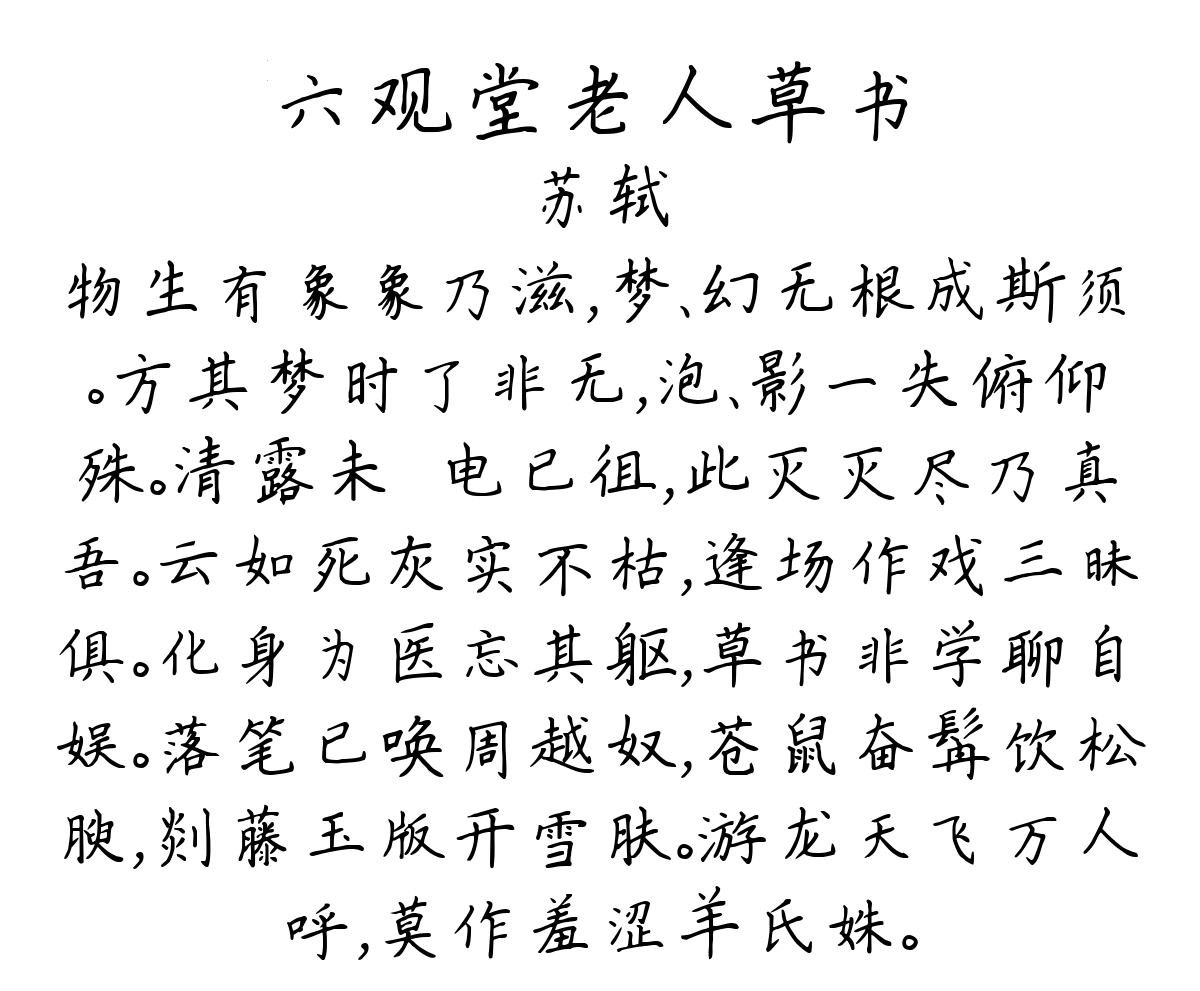 六观堂老人草书
苏轼
物生有象象乃滋,梦、幻无根成斯须
。方其梦时了非无,泡、影一失俯仰
殊。清露未 电已徂,此灭灭尽乃真
吾。云如死灰实不枯,逢场作戏三昧
俱。化身为医忘其躯,草书非学聊自
娱。落笔已唤周越奴,苍鼠奋髯饮松
腴,剡藤玉版开雪肤。游龙天飞万人
呼,莫作羞涩羊氏姝。